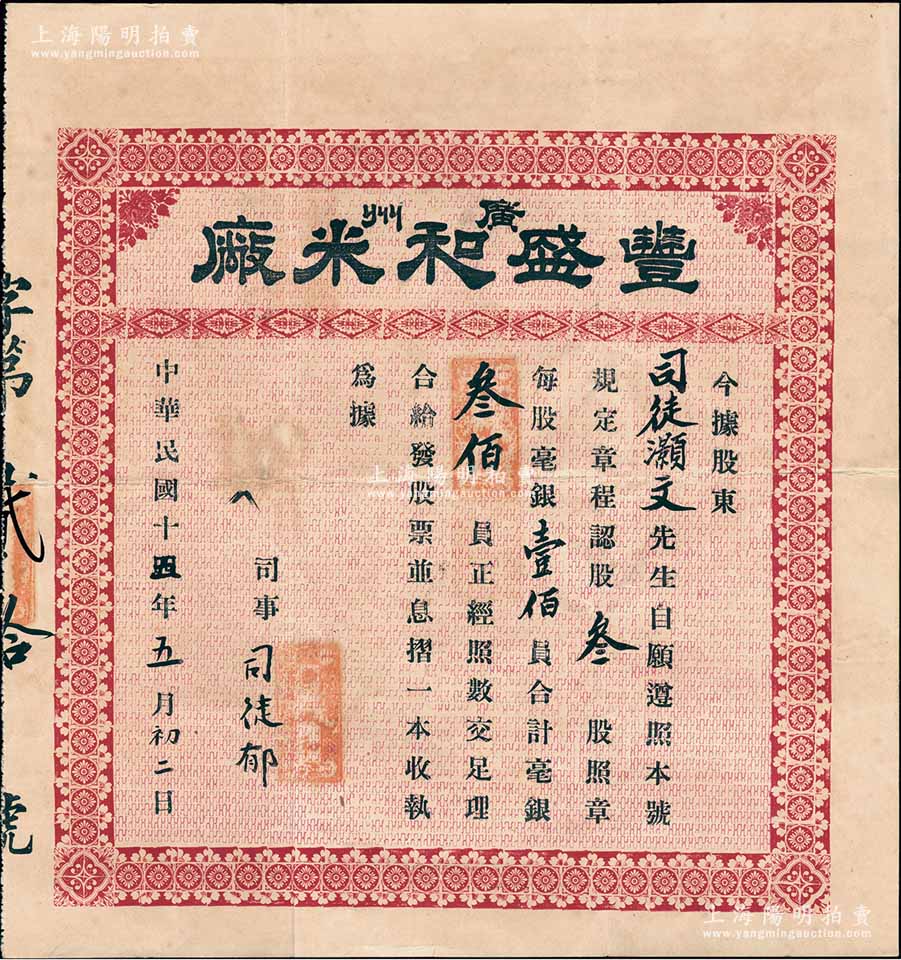 上海陽明拍賣
www.yangmingauction.com
豐盛廣和米廠
今據股東
司徒灝文先生自願遵照本號
規定章程認股叁股照章
每股毫銀壹佰員合計毫銀
叁佰員正經照數交足理
合給發股票並息摺一本收執
為據
司事 司徒郁
中華民國十四年五月初二日
字第貳拾號
上海陽明拍賣
www.yangmingauction.com
上海陽明拍賣
www.yangmingauction.com